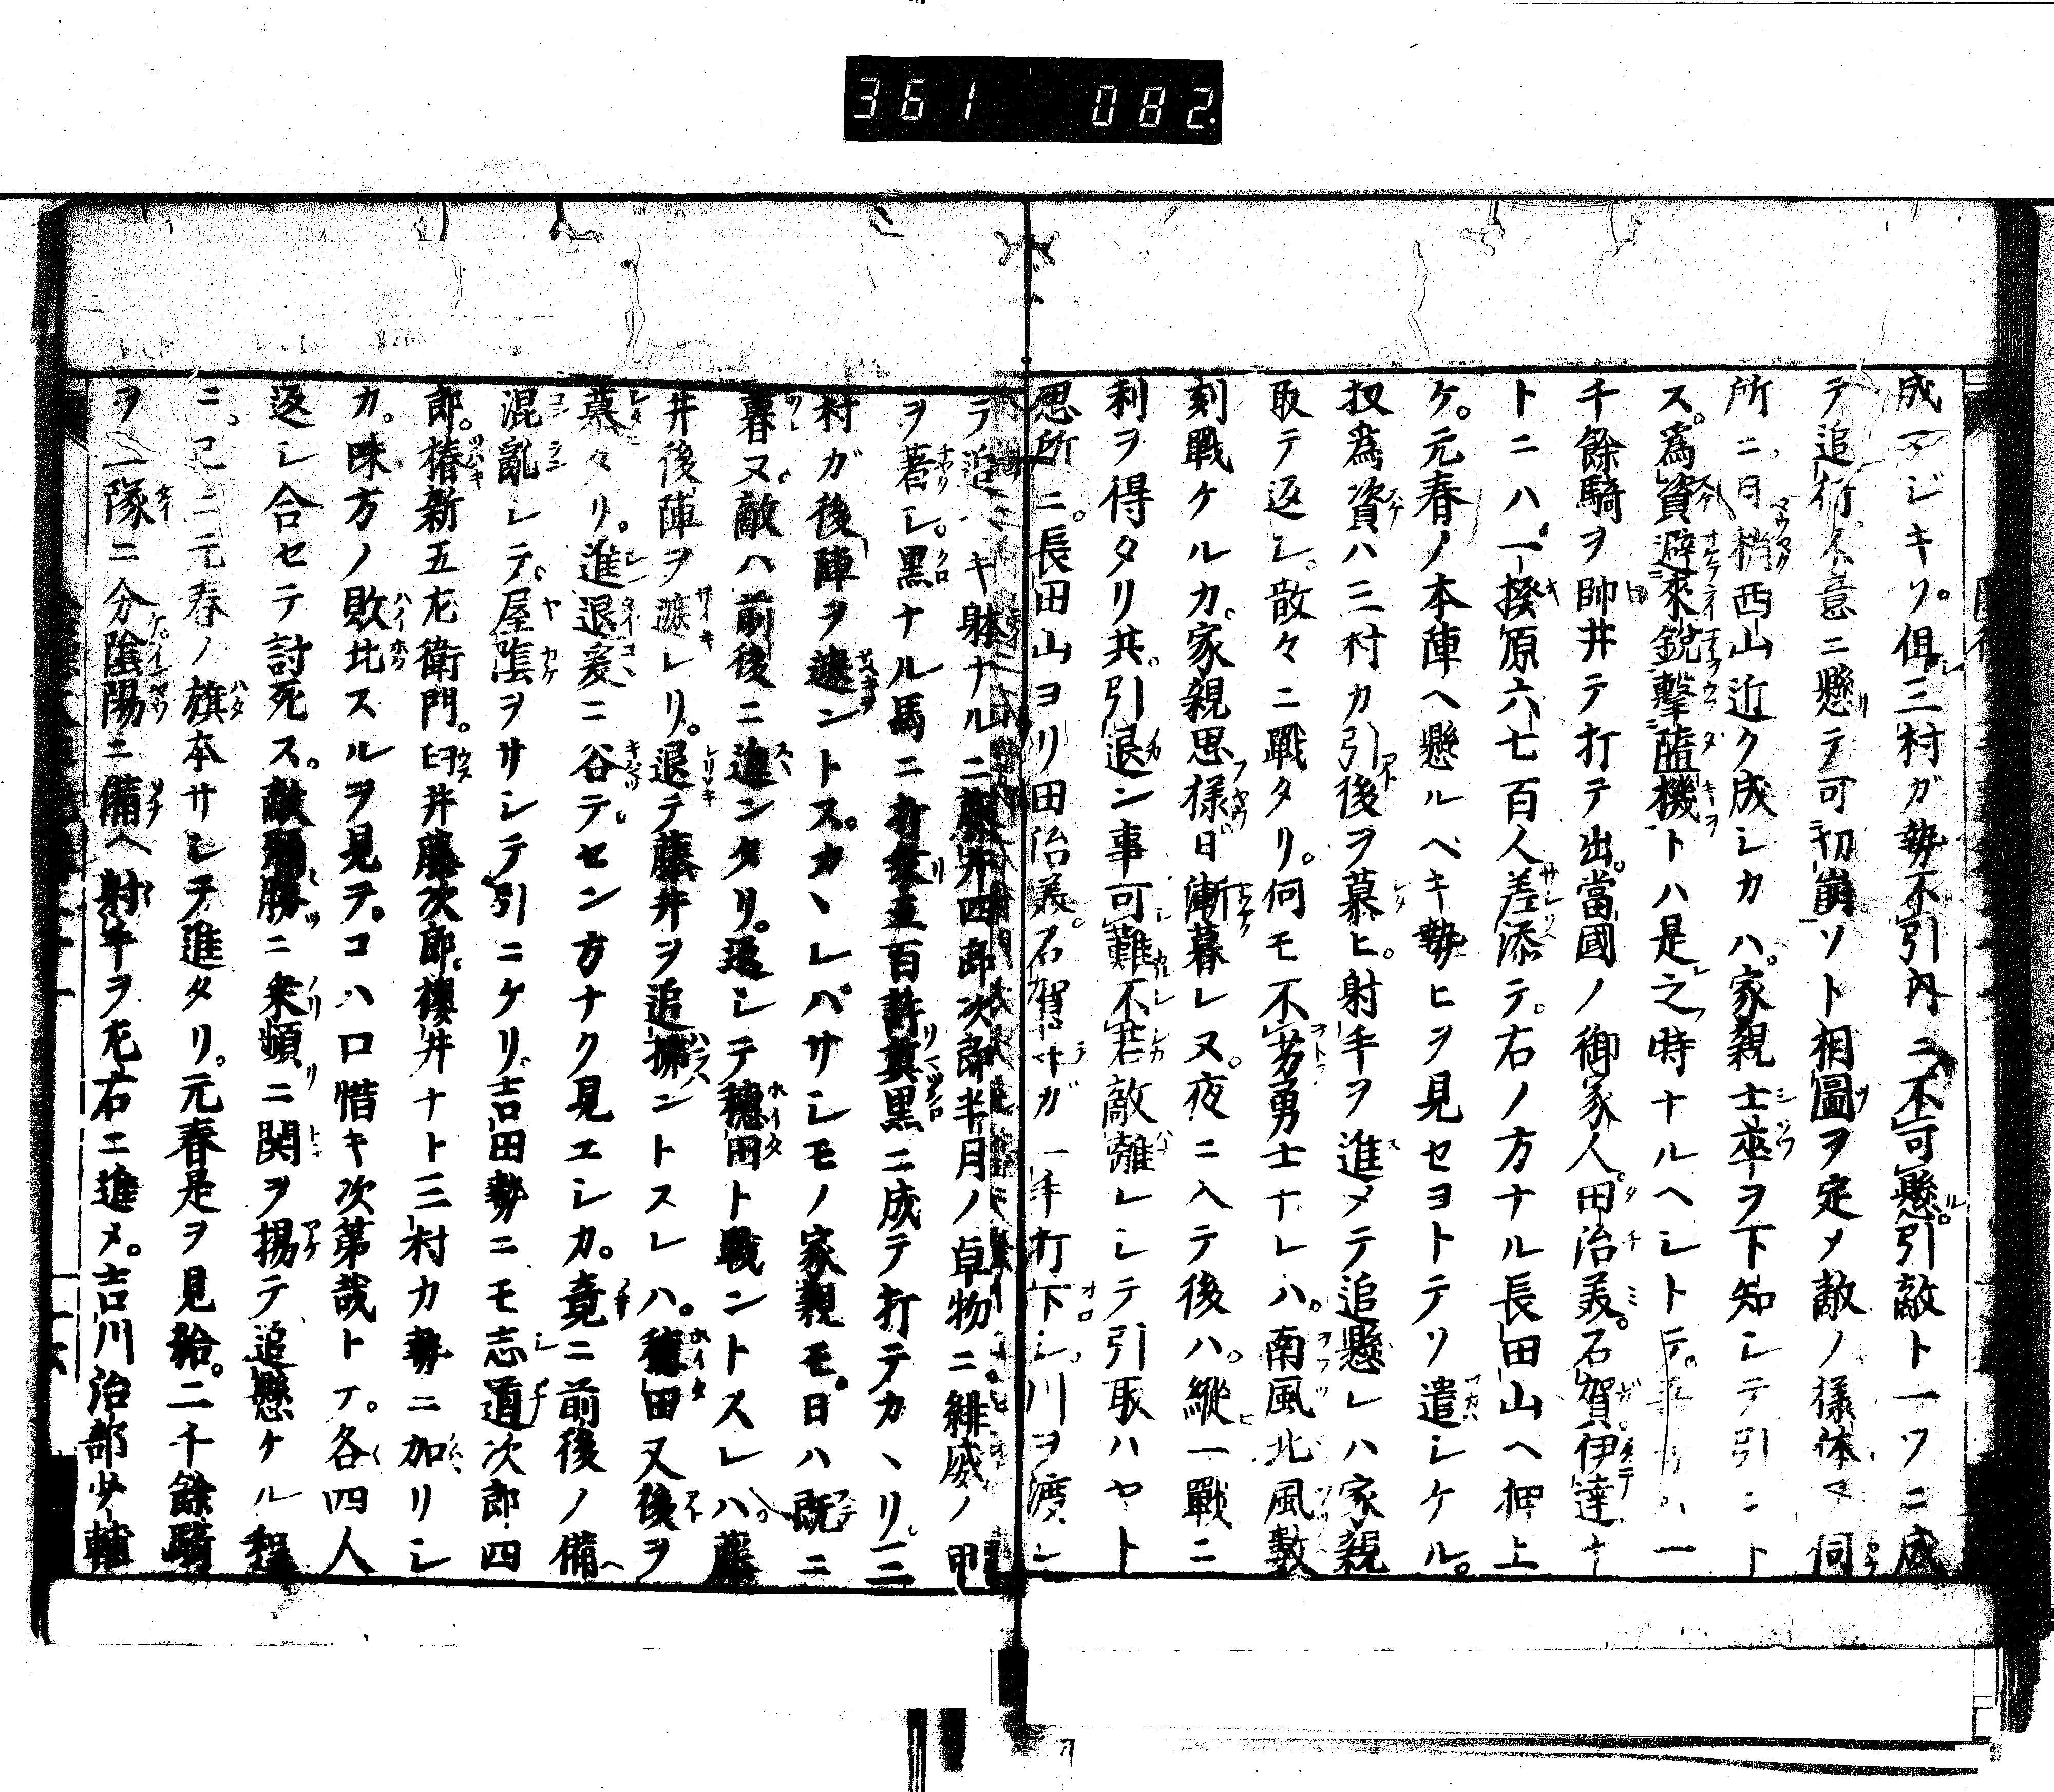 361 082.
成マジキソ。俱三村ガ勢不引內ニ不可懸。引敵ト一ツニ成
テ追行不意ニ懸テ可切崩ソト相圖ヲ定メ敵ノ樣体ヲ伺
所ニ西山近ク成シカハ。家親士卒ヲ下知シテ引ニト
ス。為資避來銳擊隋機トハ是之時ナルヘシトテ。一
千餘騎ヲ帥井テ打テ出。當國ノ御家人。田治美。石賀伊達ナ
トニハ一揆原六七百人差添テ。右ノ方ナル長田山ヘ押上
ケ。元春ノ本陣ヘ懸ルベキ勢ヒヲ見セヨトテソ遣シケル。
扨為資ハ三村カ引後ヲ慕ヒ。射手ヲ進メテ追懸レハ家親
取テ返シ。散々ニ戰タリ。何モ不劣勇士ナレハ。南風北風數
刻戰ケルカ。家親思樣日漸暮レヌ。夜ニ入テ後ハ。縱一戰ニ
利ヲ得タリ共。引退ン事可難。不若敵離レシテ引取ハヤト
思所ニ。長田山ヨリ田治美。石賀ナガ一手打下シ。川ヲ渡シ
テ追ヘキ躰ナルニ藤井四郎次郎半月ノ卓物ニ。緋威ノ甲
ヲ著シ。黑ナル馬ニ打乘五百許真黑ニ成テ打テカヽリ。三
村ガ後陣ヲ遮ントス。カヽレバサシモノ家親モ。日ハ既ニ
暮ヌ。敵ハ前後ニ進ンタリ。返シテ穗田ト戰ントスレハ。藤
井後陣ヲ遮レリ。退テ藤井ヲ追拂ントスレハ。穗田又後ヲ
慕々リ。進退爰ニ谷テセン方ナク見エシカ。竟ニ前後ノ備ヘ
混亂シテ。屋蔭ヲサシテ引ニケリ。吉田勢ニモ志道次郎四
郎。椿新五左衛門。臼井藤次郎。櫻井ナト三村カ勢ニ加リシ
カ。味方ノ敗北スルヲ見テ。コハ口惜キ次第哉トテ。各四人
返シ合セテ討死ス。敵彌勝ニ乘頻ニ関ヲ揚テ追懸ケル程
ニ。已ニ元春ノ旗本サシテ進タリ。元春是ヲ見給。二千餘騎
ヲ二隊ニ分陰陽ニ備ヘ射手ヲ左右ニ進メ。吉川治部少輔